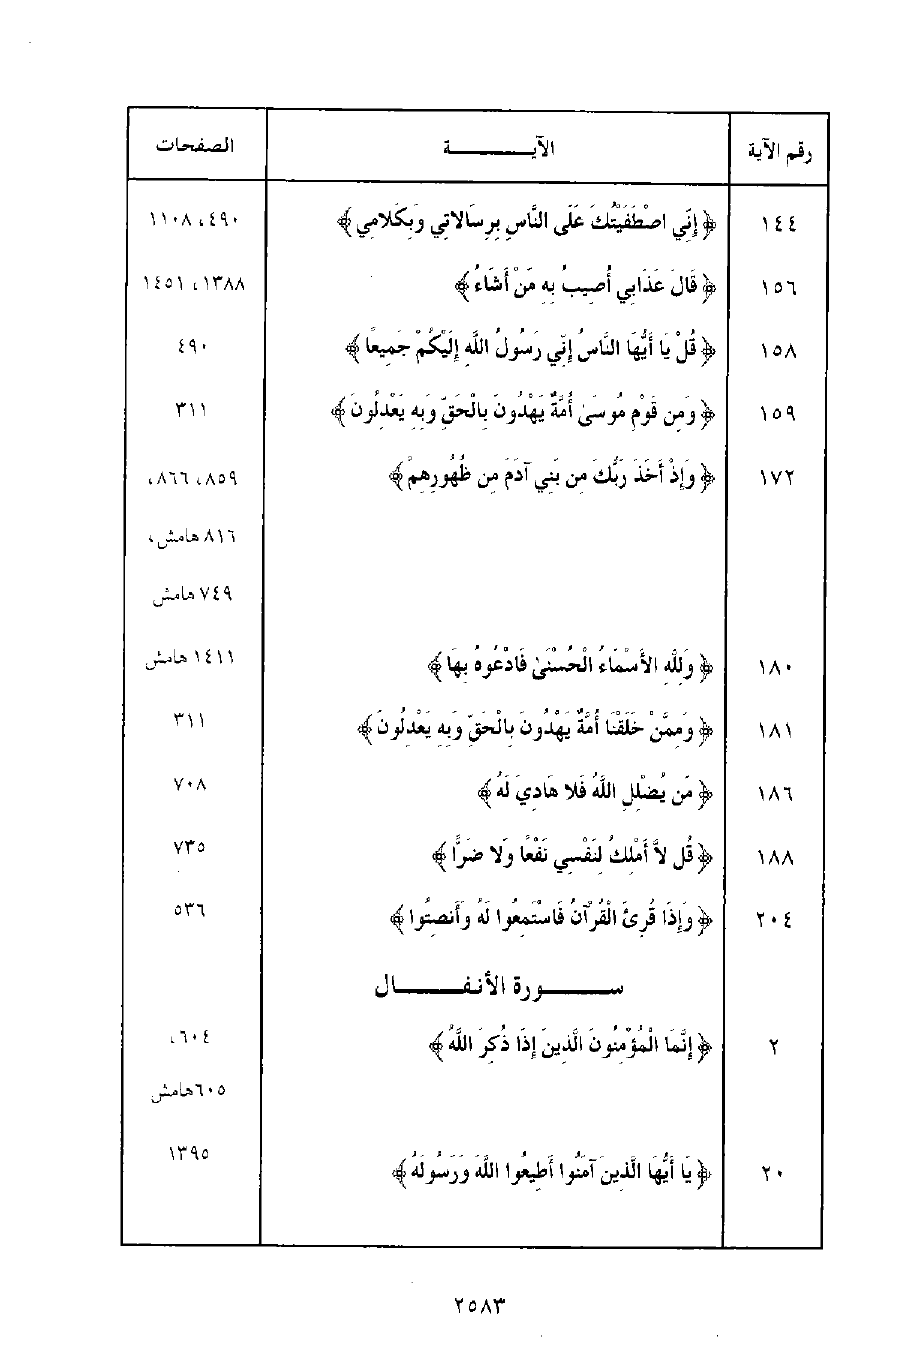 رقم الآية الآيــــــــة الصفحات
١٤٤ ﴿إِنِّي اصْطَفَيْتُكَ عَلَى النَّاسِ بِرِسَالاتِي وَبِكَلامِي﴾ ٤٩٠، ١١٠٨
١٥٦ ﴿قَالَ عَذَابِي أُصِيبُ بِهِ مَنْ أَشَاءُ﴾ ١٣٨٨، ١٤٥١
١٥٨ ﴿قُلْ يَا أَيُّهَا النَّاسُ إِنِّي رَسُولُ اللَّهِ إِلَيْكُمْ جَمِيعًا﴾ ٤٩٠
١٥٩ ﴿وَمِن قَوْمِ مُوسَىٰ أُمَّةٌ يَهْدُونَ بِالْحَقِّ وَبِهِ يَعْدِلُونَ﴾ ٣١١
١٧٢ ﴿وَإِذْ أَخَذَ رَبُّكَ مِن بَنِي آدَمَ مِن ظُهُورِهِمْ﴾ ٨٥٩، ٨٦٦،
٨١٦ هامش،
٧٤٩ هامش
١٨٠ ﴿وَلِلَّهِ الأَسْمَاءُ الْحُسْنَىٰ فَادْعُوهُ بِهَا﴾ ١٤١١ هامش
١٨١ ﴿وَمِمَّنْ خَلَقْنَا أُمَّةٌ يَهْدُونَ بِالْحَقِّ وَبِهِ يَعْدِلُونَ﴾ ٣١١
١٨٦ ﴿مَن يُضْلِلِ اللَّهُ فَلا هَادِيَ لَهُ﴾ ٧٠٨
١٨٨ ﴿قُل لاَّ أَمْلِكُ لِنَفْسِي نَفْعًا وَلا ضَرًّا﴾ ٧٣٥
٢٠٤ ﴿وَإِذَا قُرِئَ الْقُرْآنُ فَاسْتَمِعُوا لَهُ وَأَنصِتُوا﴾ ٥٣٦
ســـــــورة الأنفـــــــال
٢ ﴿إِنَّمَا الْمُؤْمِنُونَ الَّذِينَ إِذَا ذُكِرَ اللَّهُ﴾ ٦٠٤،
٦٠٥ هامش
٢٠ ﴿يَا أَيُّهَا الَّذِينَ آمَنُوا أَطِيعُوا اللَّهَ وَرَسُولَهُ﴾ ١٣٩٥
٢٥٨٣